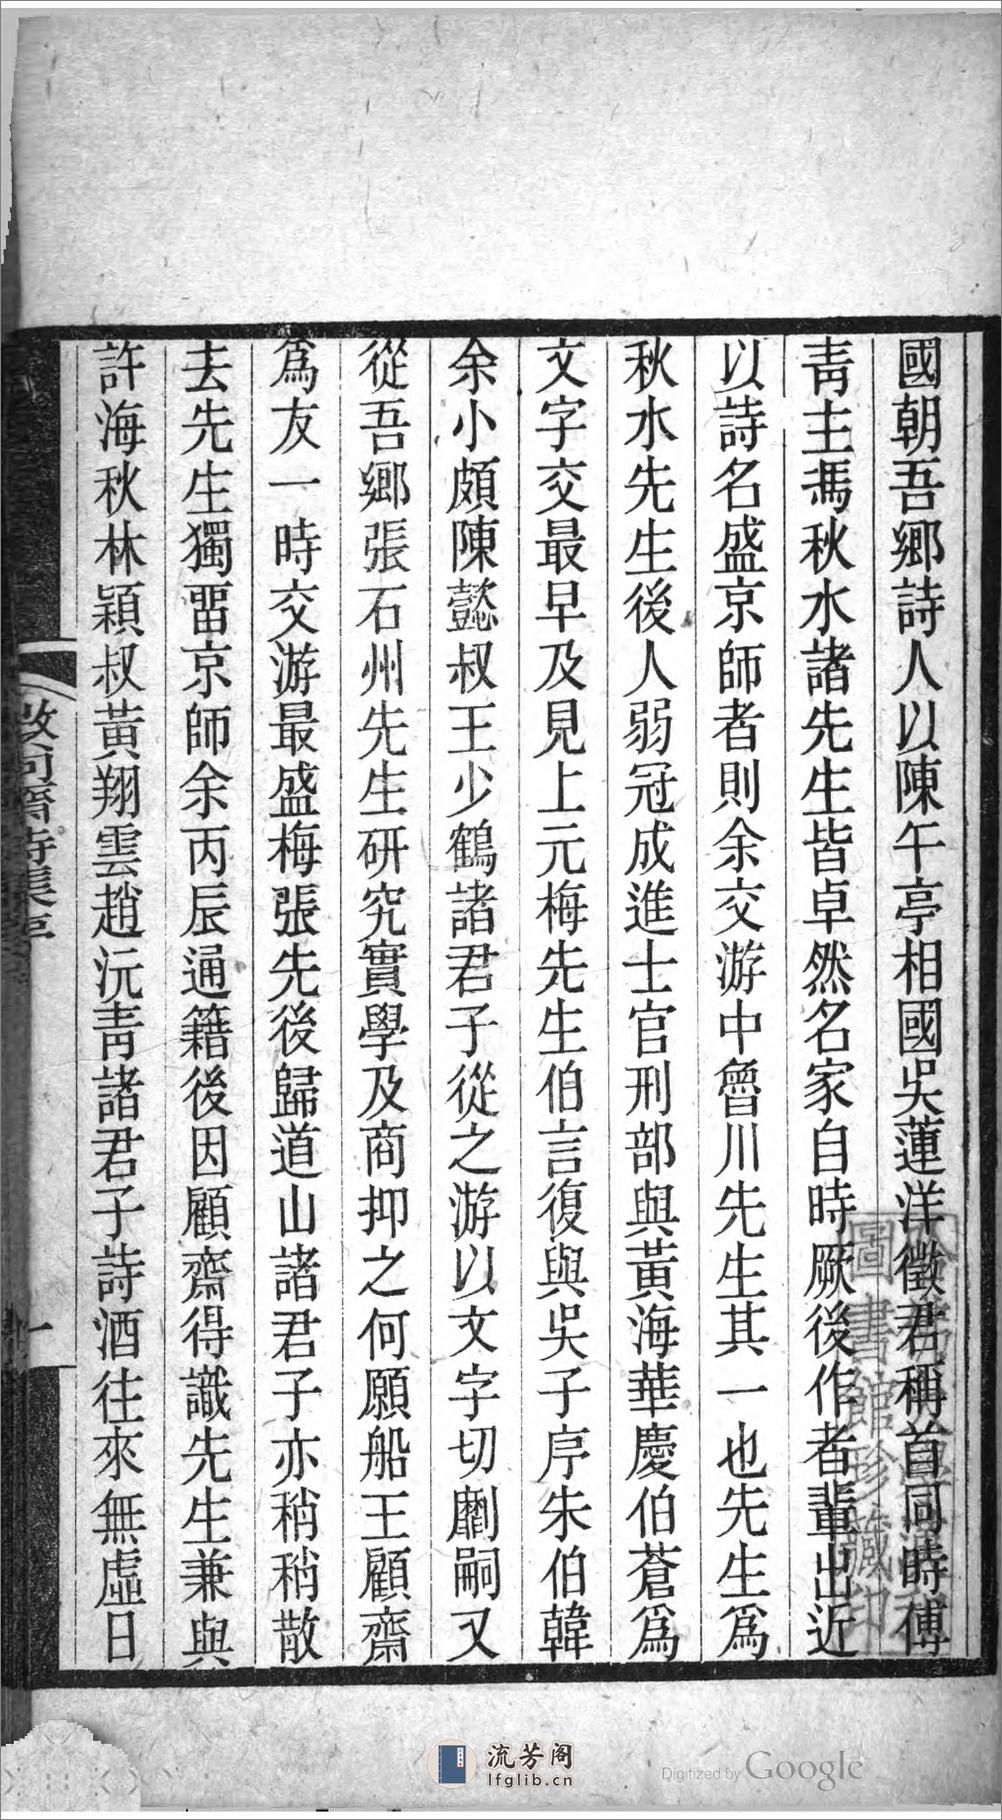 國朝吾鄉詩人以陳午亭相國吳蓮洋徵君稱首同時傅
靑主馮秋水諸先生皆卓然名家自時厥後作者輩出近
以詩名盛京師者則余交游中魯川先生其一也先生爲
秋水先生後人弱冠成進士官刑部與黃海華慶伯蒼爲
文字交最早及見上元梅先生伯言復與吳子序朱伯韓
余小頗陳懿叔王少鶴諸君子從之游以文字切劘嗣又
從吾鄉張石州先生硏究實學及商抑之何願船王顧齋
爲友一時交游最盛梅張先後歸道山諸君子亦稍稍散
去先生獨畱京師余丙辰通籍後因顧齋得識先生兼與
許海秋林穎叔黃翔雲趙沅靑諸君子詩酒往來無虛日
詩集序
一
圖書館珍藏印
流芳阁
lfglib.cn
Digitized by Google